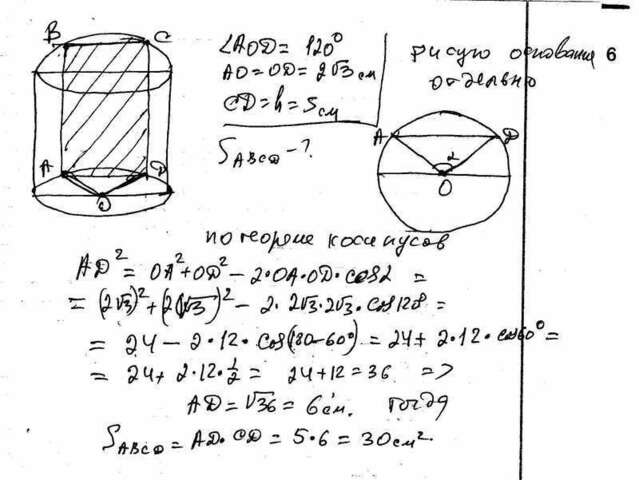 B C
∠AOD = 120°
AO = OD = 2√3 см
CD = h = 5 см
S_ABCD - ?
A D
O
рисую основания 6
отдельно
A D
α
O
по теореме косинусов
AD² = OA² + OD² - 2·OA·OD·cosα =
= (2√3)² + (2√3)² - 2·2√3·2√3·cos120° =
= 24 - 2·12·cos(180-60°) = 24 + 2·12·cos60° =
= 24 + 2·12·½ = 24 + 12 = 36 =>
AD = √36 = 6 см. тогда
S_ABCD = AD·CD = 5·6 = 30 см².